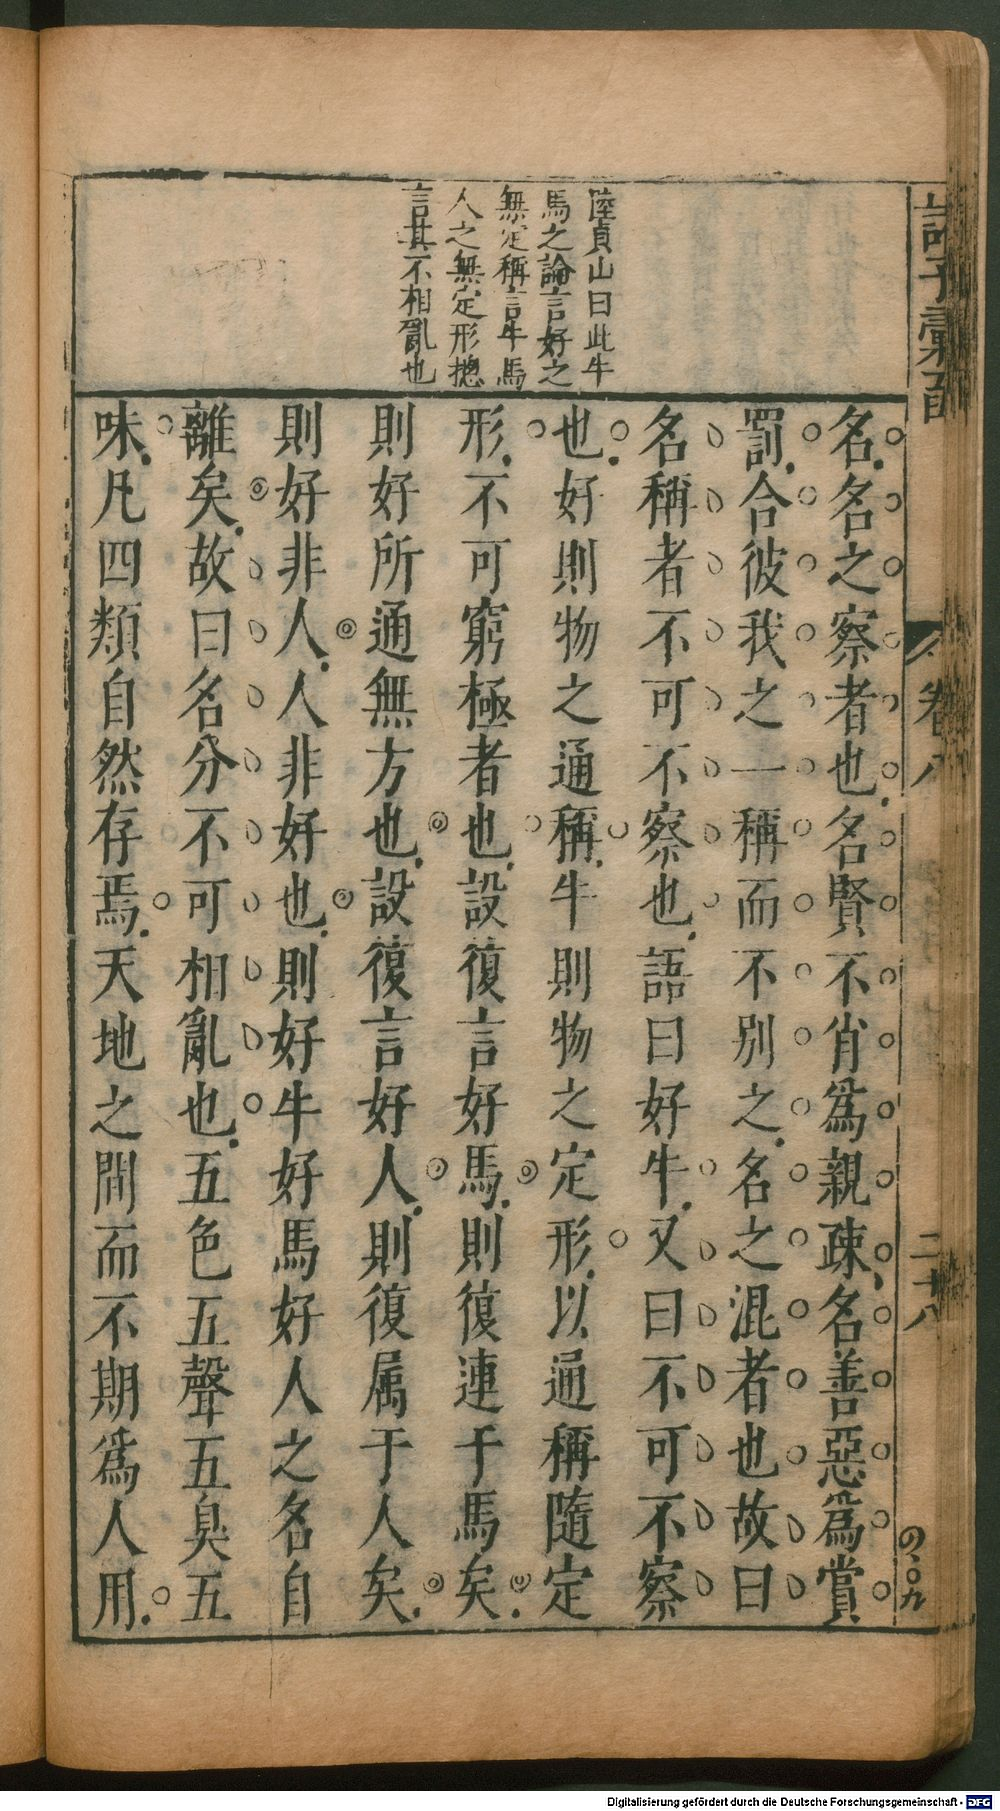 諸子彙函
卷八
二十八
陸貞山曰此牛
馬之論言好之
無定稱言牛馬
人之無定形摠
言其不相亂也
名名之察者也名賢不肖爲親疎名善惡爲賞
罰合彼我之一稱而不別之名之混者也故曰
名稱者不可不察也語曰好牛又曰不可不察
也好則物之通稱牛則物之定形以通稱隨定
形不可窮極者也設復言好馬則復連于馬矣
則好所通無方也設復言好人則復属于人矣
則好非人人非好也則好牛好馬好人之名自
離矣故曰名分不可相亂也五色五聲五臭五
味凡四類自然存焉天地之間而不期爲人用
Digitalisierung gefördert durch die Deutsche Forschungsgemeinschaft - DFG